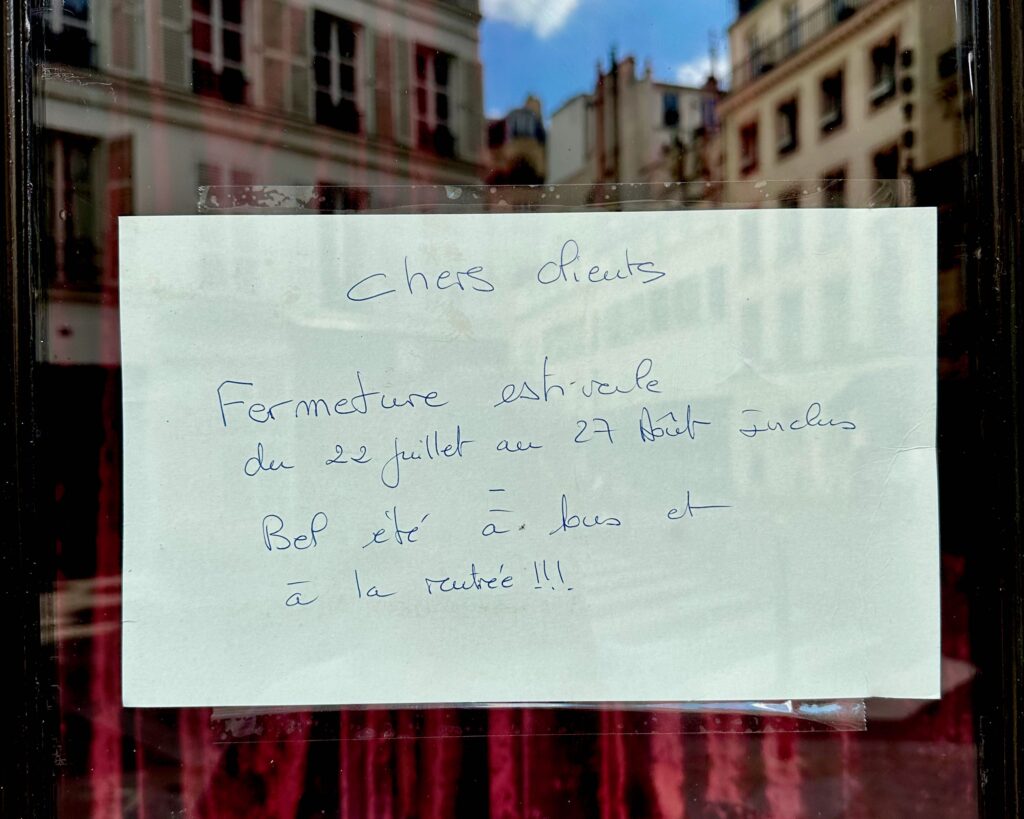 Chers clients
Fermeture estivale
du 22 juillet au 27 Août Inclus
Bel été à tous et
à la rentrée !!!